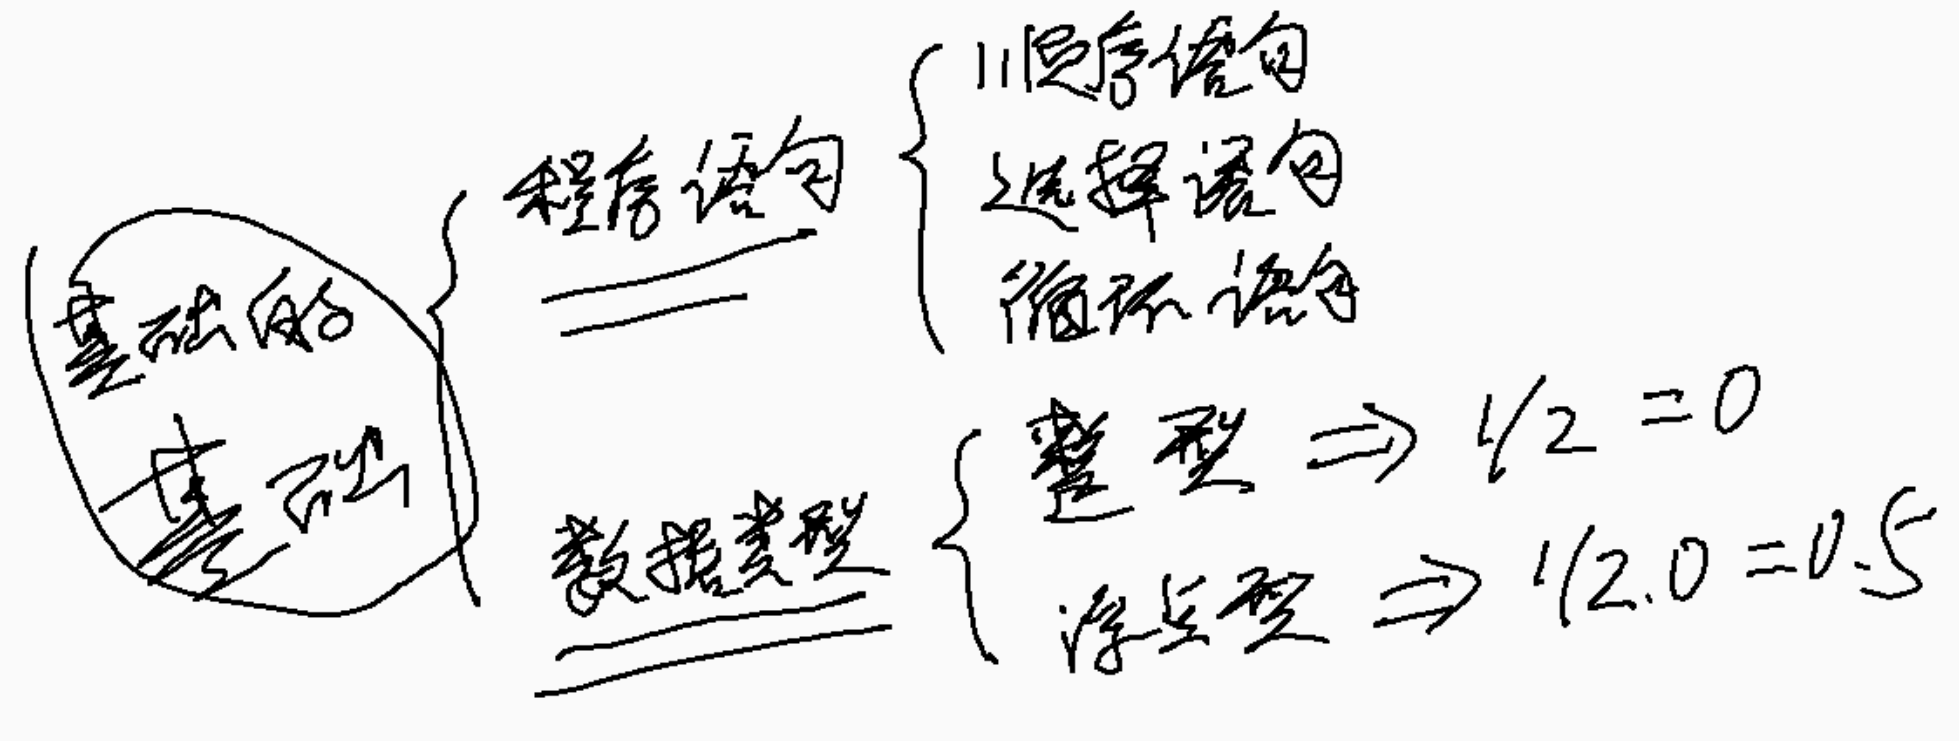 基础的
基础
程序语句
顺序语句
选择语句
循环语句
数据类型
整型 ⇒ 1/2 = 0
浮点型 ⇒ 1/2.0 = 0.5